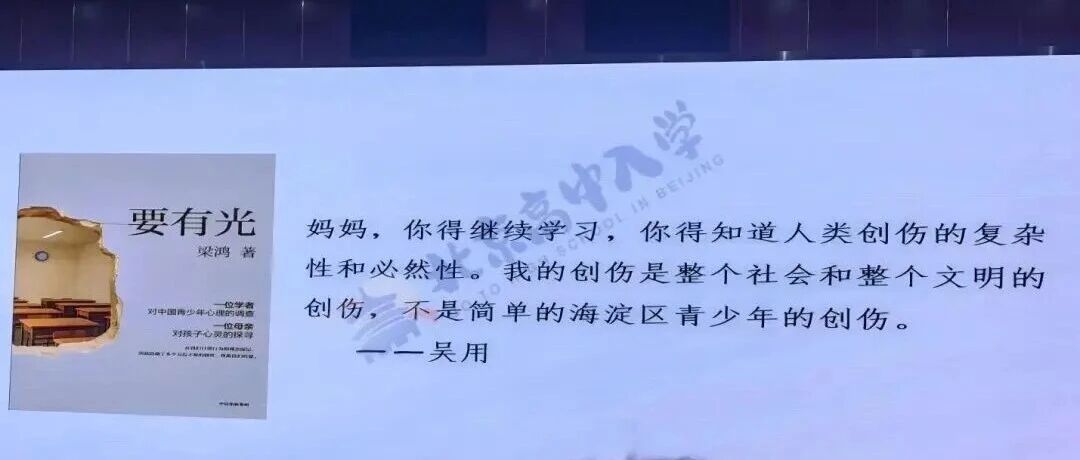 要有光
梁鸿 著
一位学者
对中国青少年心理的调查
一位母亲
对孩子心灵的探寻
妈妈，你得继续学习，你得知道人类创伤的复杂
性和必然性。我的创伤是整个社会和整个文明的
创伤，不是简单的海淀区青少年的创伤。
——吴用
北京高中入学
GO TO SCHOOL IN BEIJING